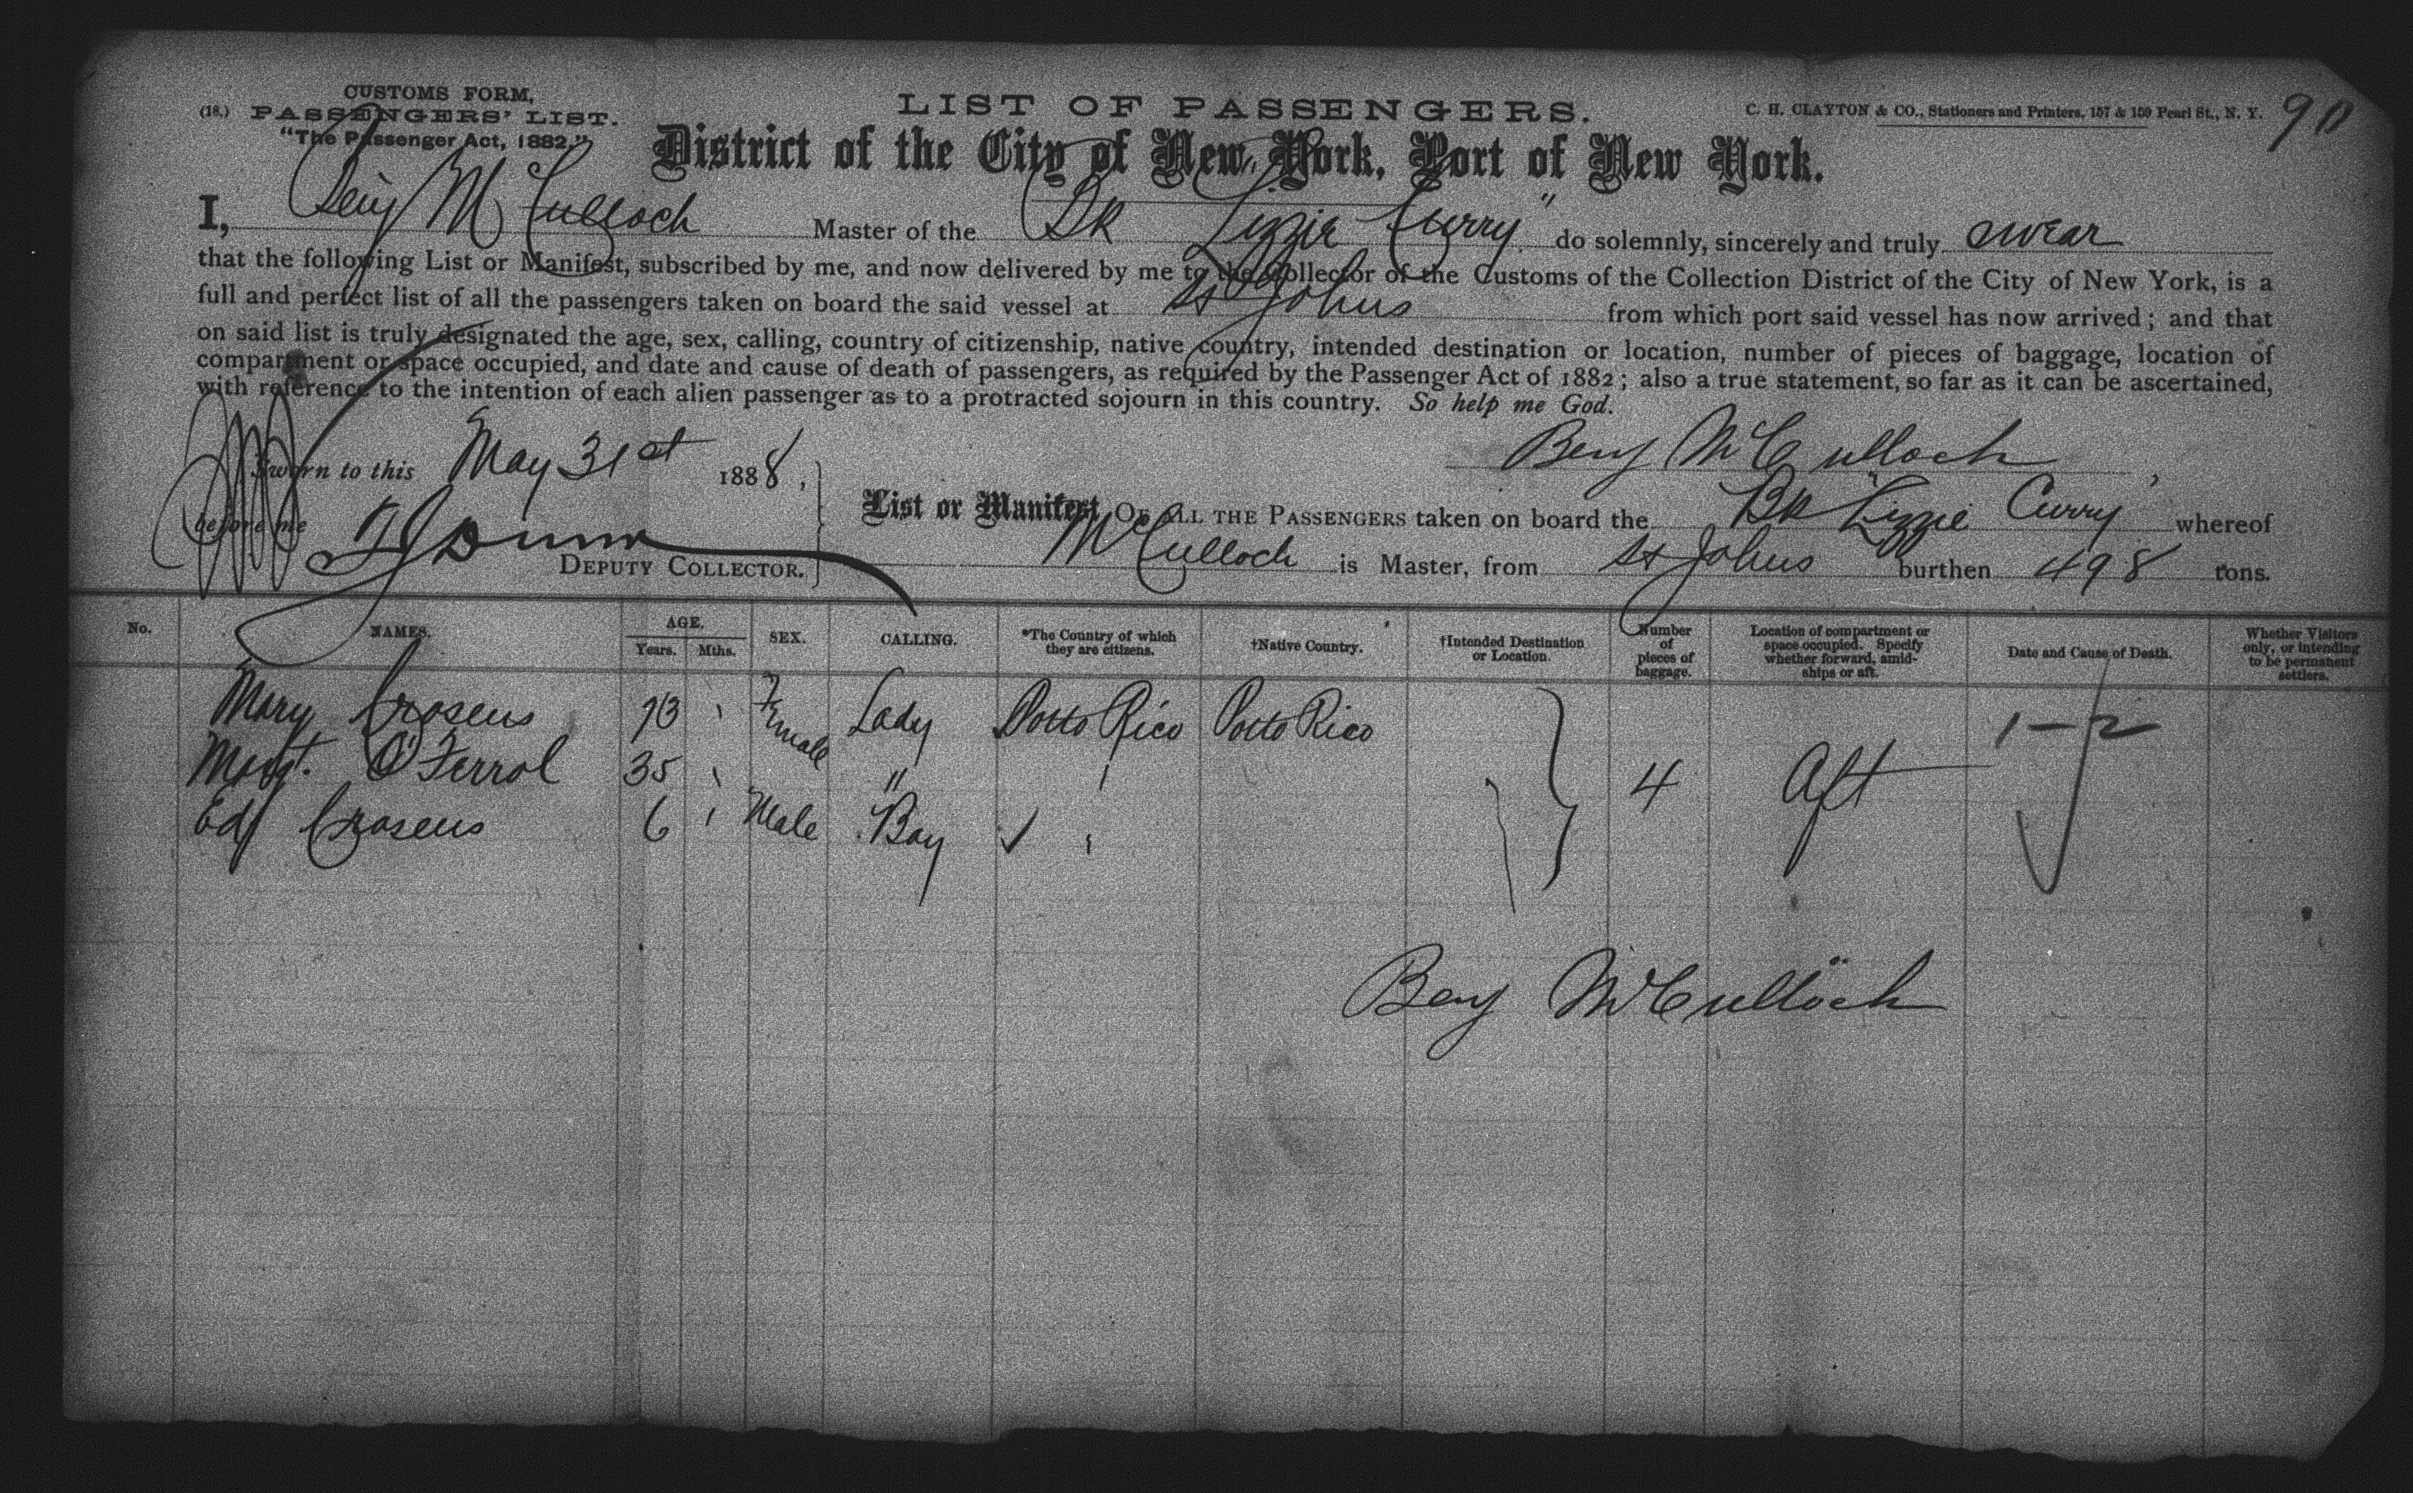 CUSTOMS FORM,
(18.) PASSENGERS' LIST.
"The Passenger Act, 1882."
LIST OF PASSENGERS.
C. H. CLAYTON & CO., Stationers and Printers, 157 & 159 Pearl St., N. Y.
90
District of the City of New York, Port of New York.
I, Benj McCulloch Master of the Bk "Lizzie Curry" do solemnly, sincerely and truly swear
that the following List or Manifest, subscribed by me, and now delivered by me to the Collector of the Customs of the Collection District of the City of New York, is a
full and perfect list of all the passengers taken on board the said vessel at St Johns from which port said vessel has now arrived; and that
on said list is truly designated the age, sex, calling, country of citizenship, native country, intended destination or location, number of pieces of baggage, location of
compartment or space occupied, and date and cause of death of passengers, as required by the Passenger Act of 1882; also a true statement, so far as it can be ascertained,
with reference to the intention of each alien passenger as to a protracted sojourn in this country. So help me God.
Sworn to this May 31st 1888,
Benj McCulloch
before me
DEPUTY COLLECTOR.
List or Manifest OF ALL THE PASSENGERS taken on board the Bk "Lizzie Curry" whereof
McCulloch is Master, from St Johns burthen 498 tons.
No. NAMES. AGE. Years. Mths. SEX. CALLING. *The Country of which they are citizens. †Native Country. †Intended Destination or Location. Number of pieces of baggage. Location of compartment or space occupied. Specify whether forward, amid-ships or aft. Date and Cause of Death. Whether Visitors only, or intending to be permanent settlers.
Mary Crosens Female Lady Porto Rico Porto Rico 1-2
Margt. O'Ferrol 35 " 4 Aft
Ed Crosens 6 Male Boy
Benj McCulloch